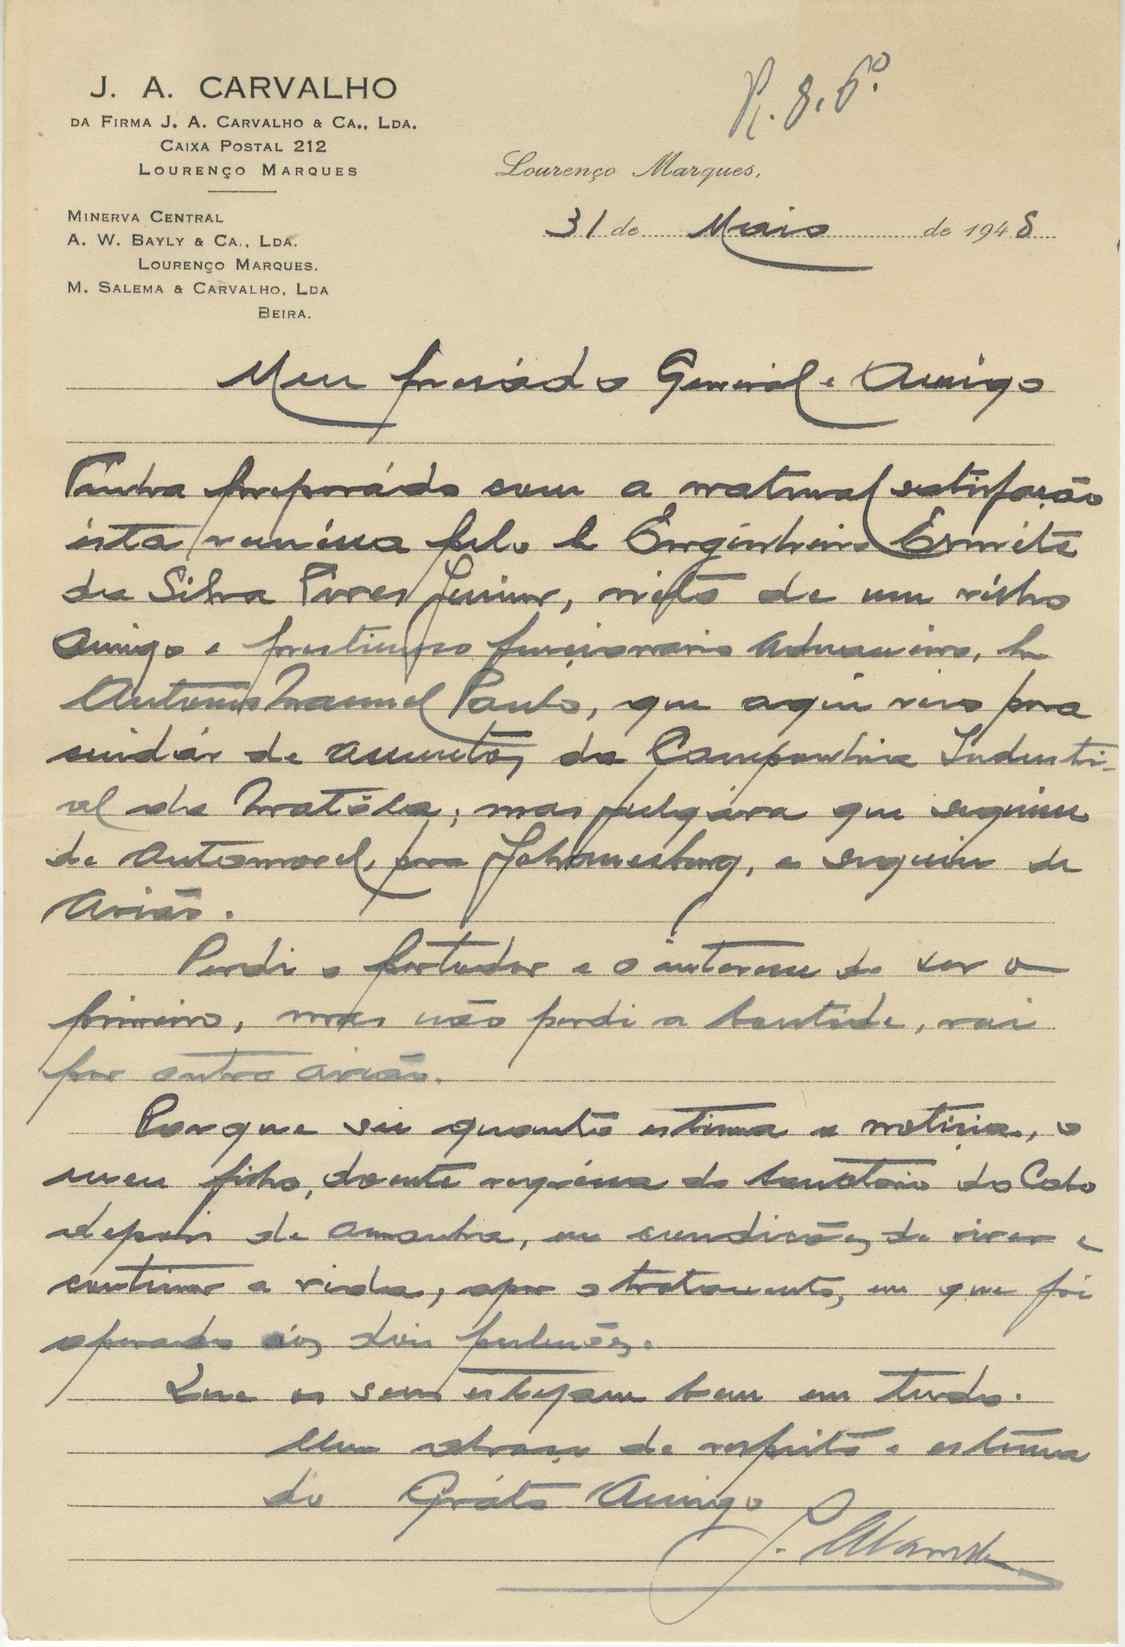 J. A. CARVALHO
DA FIRMA J. A. CARVALHO & CA., LDA.
CAIXA POSTAL 212
LOURENÇO MARQUES
MINERVA CENTRAL
A. W. BAYLY & CA., LDA.
LOURENÇO MARQUES.
M. SALEMA & CARVALHO, LDA
BEIRA.
Lourenço Marques,
31 de Maio de 1948
Meu presádo General e Amigo
Tinha preparádo com a natural satisfação
ésta remessa pelo Engenheiro
da Silva Pires Junior, neto de um velho
Amigo e prestimoso funcionario Aduaneiro,
Antonio Manuel Paulo, que aqui veio para
cuidár de assuntos da Companhia Industri-
al da Matóla; mas julgára que seguisse
de Automovel, para Johannesburg, e seguiu de
Avião.
Perdi o portador e o interesse de ser o
primeiro, mas não perdi a vontade, vai
por outro avião.
Porque sei quanto estima a noticia, o
meu filho, doente regressa do Sanatorio do Cabo
depois de amanha, em condições de viver e
continuar a vida, apos o tratamento, em que foi
operado aos dois pulmões.
Que os seus estejam bem em tudo.
Um abraço de respeito e estima
do Gráto Amigo